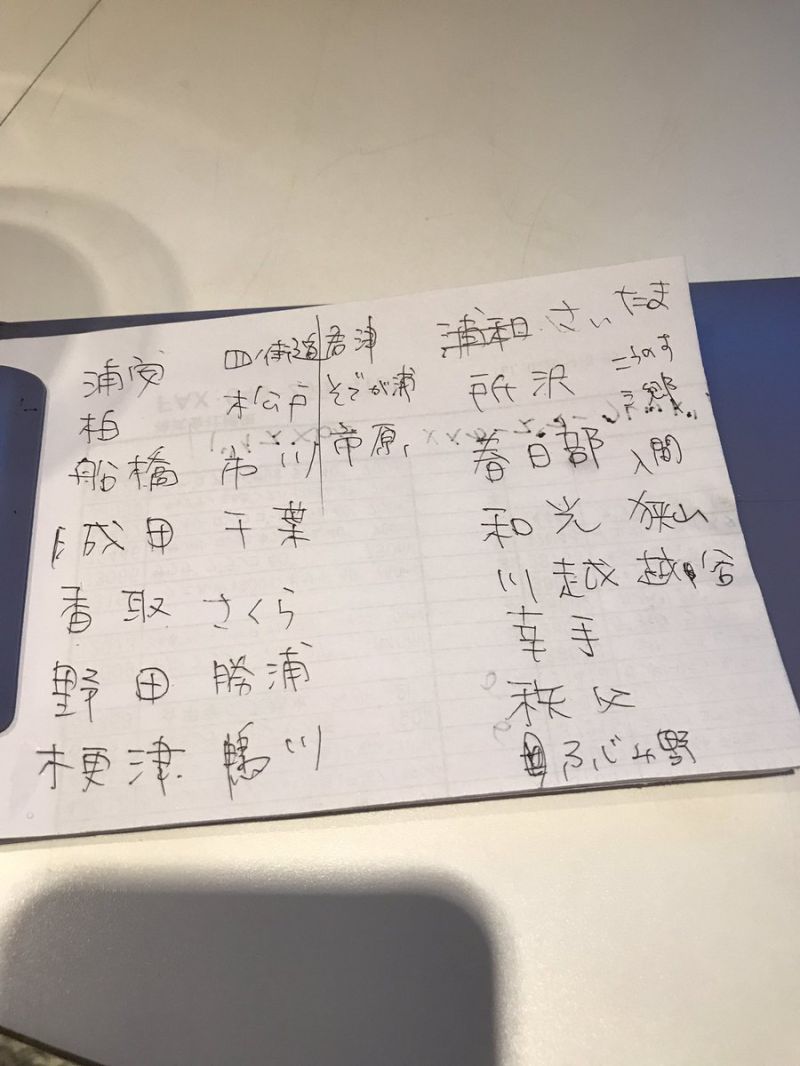 浦安
柏
船橋
成田
香取
野田
木更津
四街道
松戸
市川
千葉
さくら
勝浦
鴨川
君津
そでが浦
市原
浦和 さいたま
所沢 こうのす
春日部 入間
和光 狭山
川越 越谷
幸手
秩父
ふじみ野